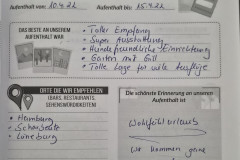 Aufenthalt von: 10.4.22 Aufenthalt bis: 15.4.22
DAS BESTE AN UNSEREM
AUFENTHALT WAR
• Toller Empfang
• Super Ausstattung
• Hundefreundliche Einrichtung
• Garten mit Grill
• Tolle Lage für viele Ausflüge
ORTE DIE WIR EMPFEHLEN
(BARS, RESTAURANTS,
SEHENSWÜRDIGKEITEN)
• Hamburg
• Scharbeutz
• Lüneburg
Die schönste Erinnerung an unseren
Aufenthalt ist
Wohlfühlurlaub
Wir kommen ganz